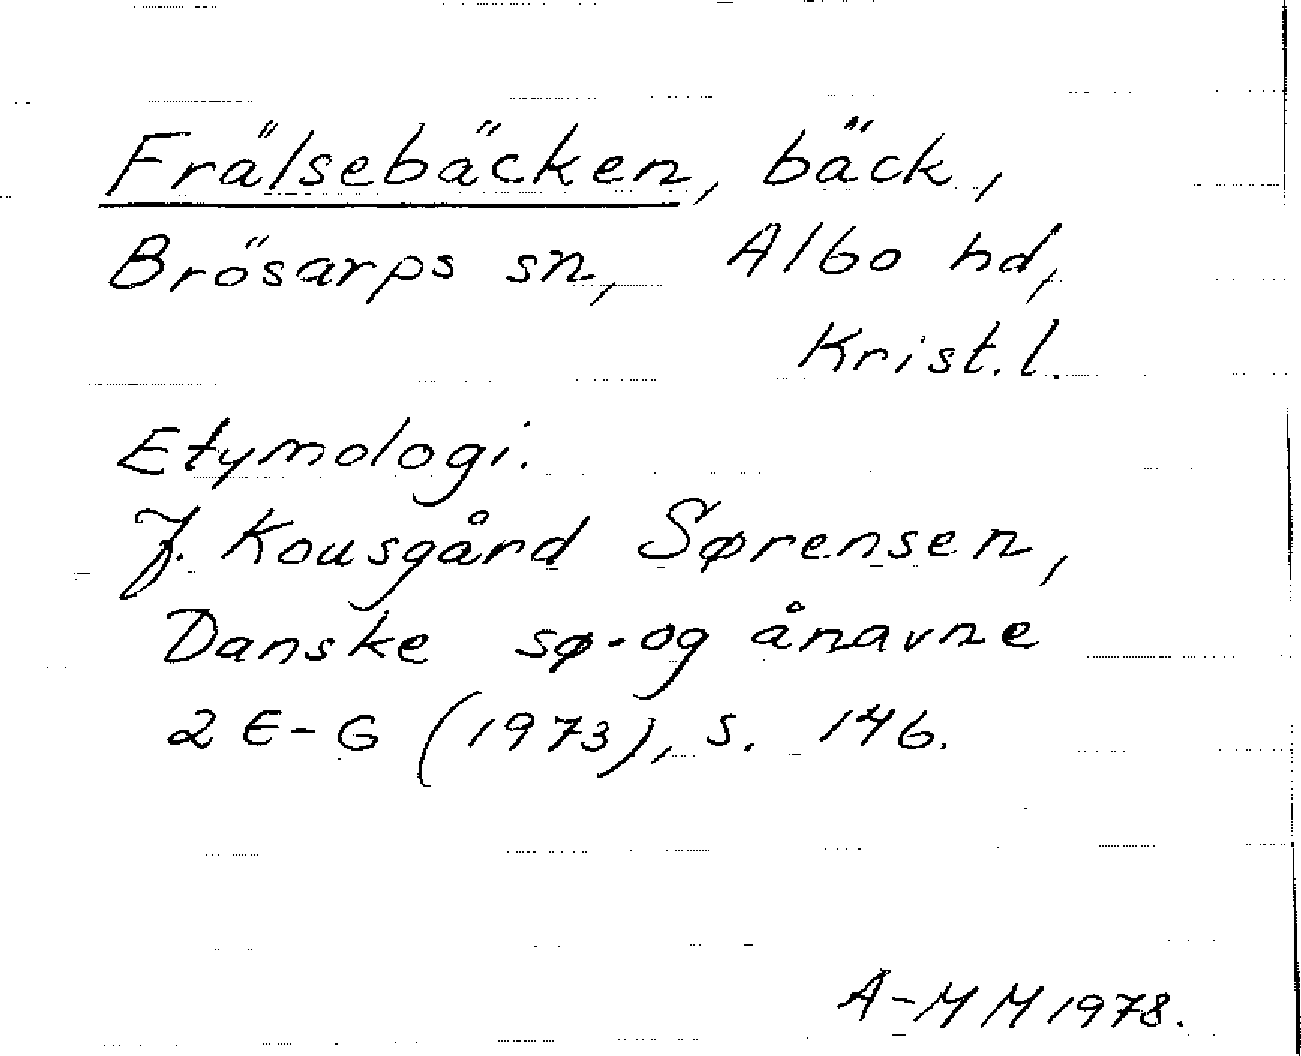 Frälsebäcken, bäck,
Brösarps sn, Albo hd,
Krist.l.
Etymologi.
J. Kousgård Sørensen,
Danske sø- og ånavne
2 E-G (1973), s. 146.
A-MM 1978.